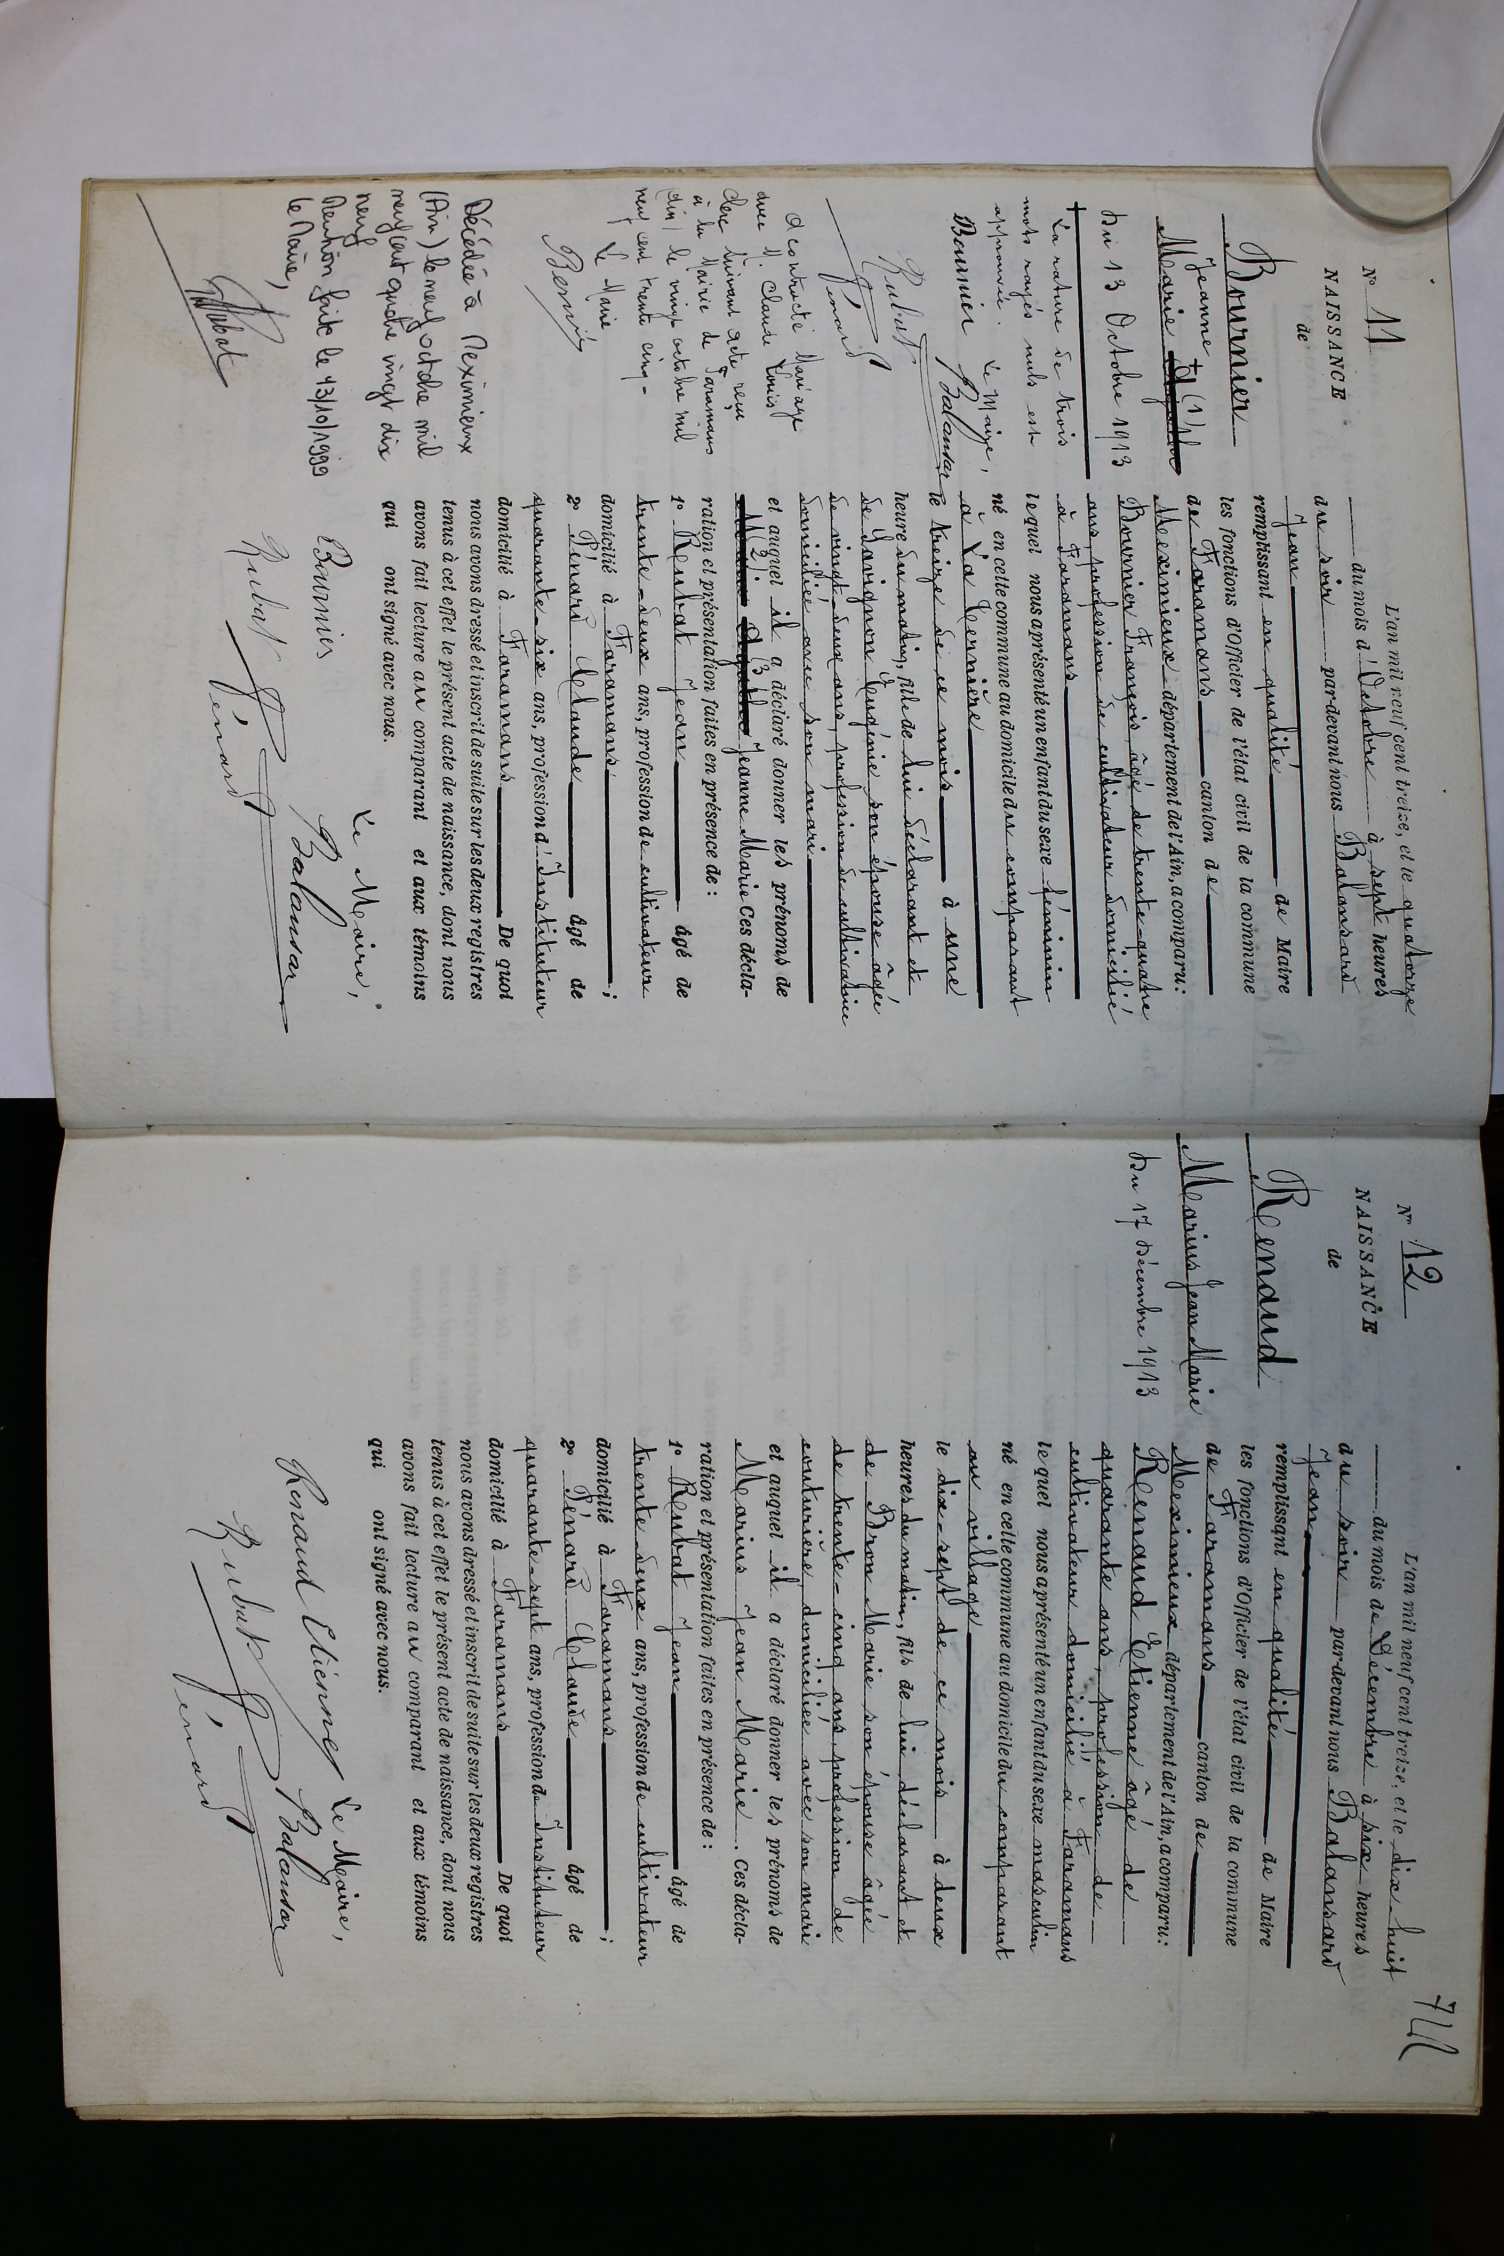 N° 11
NAISSANCE
de
Bournier
Jeanne
Marie
du 13 Octobre 1913
La rature de trois
mots rayés nuls est
approuvée. Le Maire,
Bournier Balansard
Rubat
Pénard
A contracté Mariage
avec M. Claude Louis
Clerc suivant acte reçu
à la Mairie de Faramans
(Ain) le vingt octobre mil
neuf cent trente cinq-
Le Maire
Décédée à Meximieux
(Ain) le neuf octobre mil
neuf cent quatre vingt dix
neuf
Mention faite le 13/10/1999
le Maire,
Rubat
L'an mil neuf cent treize, et le quatorze
du mois d'Octobre à sept heures
du soir par-devant nous Balansard
Jean
remplissant en qualité de Maire
les fonctions d'Officier de l'état civil de la commune
de Faramans canton de
Meximieux département de l'Ain, a comparu:
Bournier François âgé de trente-quatre
ans, profession de cultivateur domicilié
à Faramans
lequel nous a présenté un enfant du sexe féminin
né en cette commune au domicile du comparant
à La Cernière
le treize de ce mois à une
heure du matin, fille de lui déclarant et
de Savignon Eugénie son épouse âgée
de vingt-deux ans, profession de cultivatrice
domiciliée avec son mari
et auquel il a déclaré donner les prénoms de
Jeanne Marie Ces décla-
ration et présentation faites en présence de:
1° Rubat Jean âgé de
trente-deux ans, profession de cultivateur
domicilié à Faramans;
2° Pénard Claude âgé de
quarante-six ans, profession d'Instituteur
domicilié à Faramans De quoi
nous avons dressé et inscrit de suite sur les deux registres
tenus à cet effet le présent acte de naissance, dont nous
avons fait lecture au comparant et aux témoins
qui ont signé avec nous.
Le Maire,
Bournier Balansard
Rubat Pénard
742
N° 12
NAISSANCE
de
Renaud
Marius Jean Marie
du 17 Décembre 1913
L'an mil neuf cent treize, et le dix-huit
du mois de Décembre à six heures
du soir par-devant nous Balansard
Jean
remplissant en qualité de Maire
les fonctions d'Officier de l'état civil de la commune
de Faramans canton de
Meximieux département de l'Ain, a comparu:
Renaud Etienne âgé de
quarante ans, profession de
cultivateur domicilié à Faramans
lequel nous a présenté un enfant du sexe masculin
né en cette commune au domicile du comparant
au village
le dix-sept de ce mois à deux
heures du matin, fils de lui déclarant et
de Bron Marie son épouse âgée
de trente-cinq ans, profession de
couturière, domiciliée avec son mari
et auquel il a déclaré donner les prénoms de
Marius Jean Marie. Ces décla-
ration et présentation faites en présence de:
1° Rubat Jean âgé de
trente-deux ans, profession de cultivateur
domicilié à Faramans;
2° Pénard Claude âgé de
quarante-sept ans, profession d'Instituteur
domicilié à Faramans De quoi
nous avons dressé et inscrit de suite sur les deux registres
tenus à cet effet le présent acte de naissance, dont nous
avons fait lecture au comparant et aux témoins
qui ont signé avec nous.
Le Maire,
Renaud Etienne Balansard
Rubat Pénard